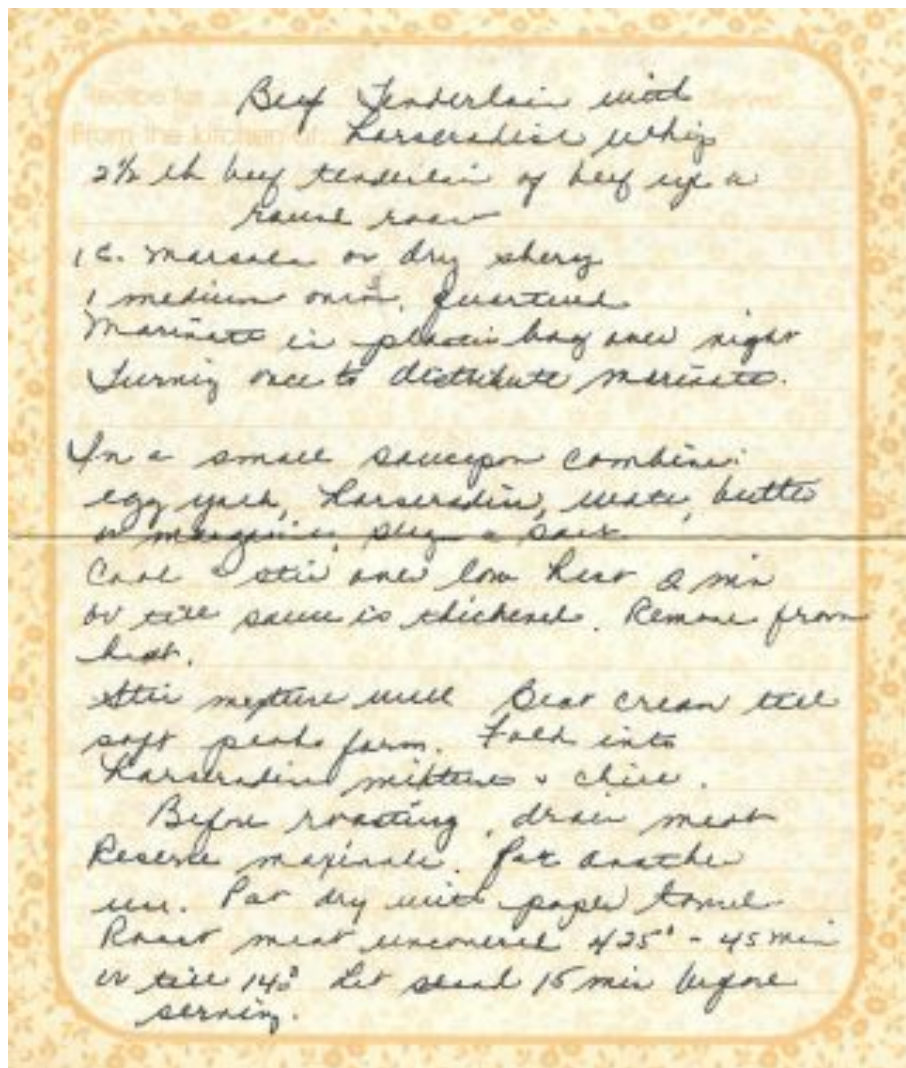 Recipe for
From the kitchen of:
Beef Tenderloin with
Horseradish Whip
2½ lb beef tenderloin of beef eye a
round roast
1 c. Marsala or dry shery
1 medium onion, quartered
Marinate in plastic bag over night
Turning once to distribute marinate.
In a small saucepon combine:
egg yolk, horseradish, water, butter
or margarine, & salt
Cook & stir over low heat 2 min
or till sauce is thickened. Remove from
heat.
Stir mixture well Beat cream till
soft peaks form. Fold into
Horseradish mixture & chill.
Before roasting, drain meat
Reserve marinate. for another
use. Pat dry with paper towel
Roast meat uncovered 425° - 45 min
or till 140° Let stand 15 min before
serving.